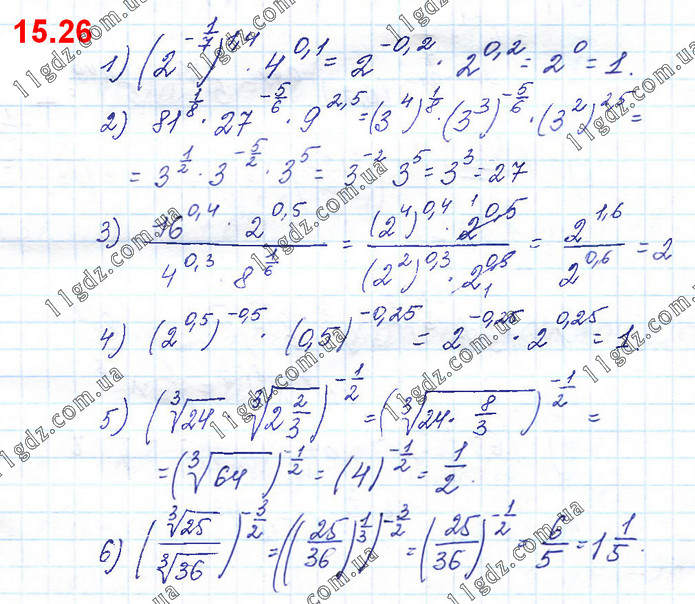 15.26
1) (2^{-1/7})^{1,4} · 4^{0,1} = 2^{-0,2} · 2^{0,2} = 2^0 = 1.
2) 81^{1/8} · 27^{-5/6} · 9^{2,5} = (3^4)^{1/8} · (3^3)^{-5/6} · (3^2)^{2,5} =
= 3^{1/2} · 3^{-5/2} · 3^5 = 3^{-2} 3^5 = 3^3 = 27
3) (16^{0,4} · 2^{0,5})/(4^{0,3} · 8^{1/6}) = ((2^4)^{0,4} · 2^{0,5})/((2^2)^{0,3} · 2^{0,5}) = 2^{1,6}/2^{0,6} = 2
4) (2^{0,5})^{-0,5} · (0,5)^{-0,25} = 2^{-0,25} · 2^{0,25} = 1.
5) (∛24 · ∛(2 2/3))^{-1/2} = (∛(24 · 8/3))^{-1/2} =
= (∛64)^{-1/2} = (4)^{-1/2} = 1/2.
6) (∛25/∛36)^{-3/2} = ((25/36)^{1/3})^{-3/2} = (25/36)^{-1/2} = 6/5 = 1 1/5.
11gdz.com.ua